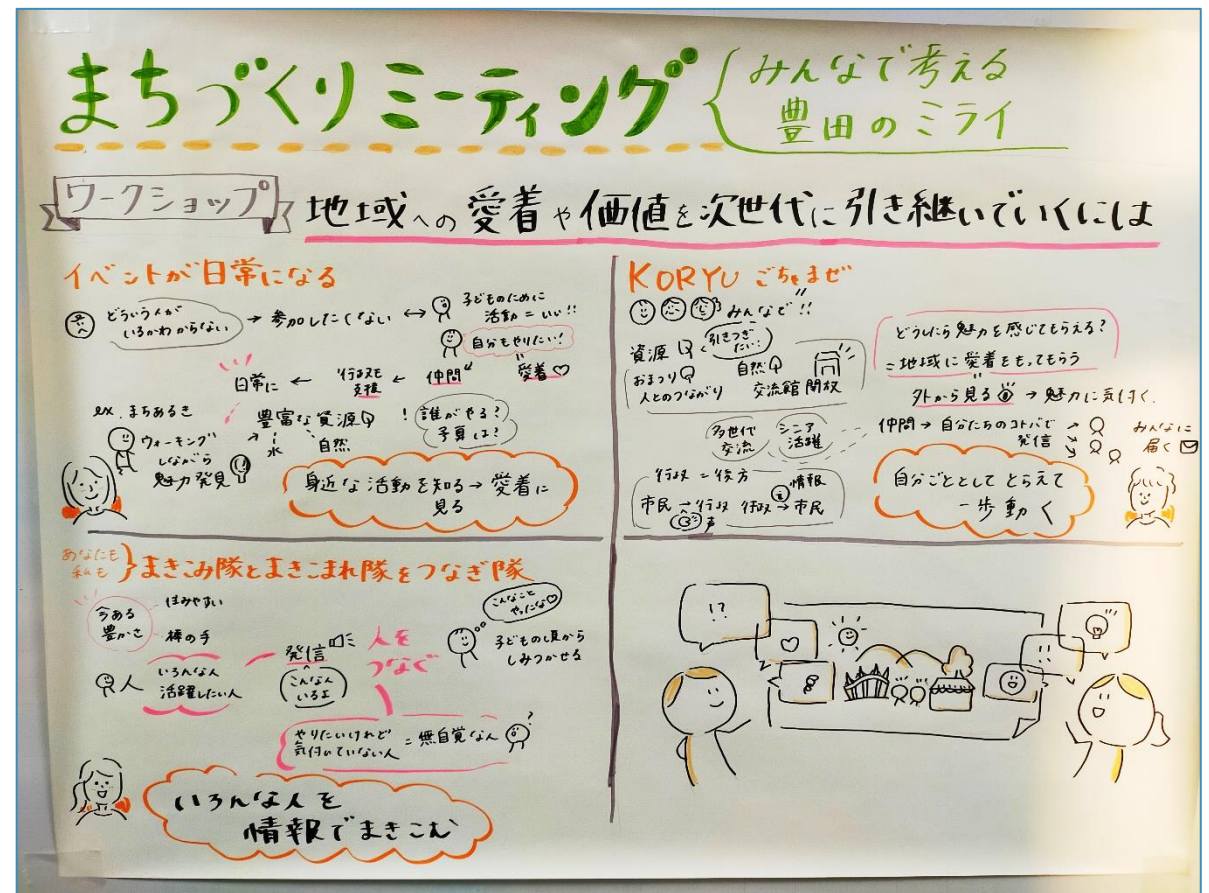 まちづくりミーティング
みんなで考える
豊田のミライ
ワークショップ
地域への愛着や価値を次世代に引き継いでいくには
イベントが日常になる
どういう人が
いるかわからない
→ 参加したくない ↔
子どものために
活動 = いい!!
自分もやりたい!
愛着♡
日常に ← 行政も
支援 ← 仲間
ex. まちあるき
ウォーキング
しながら
魅力発見
豊富な資源
水
自然
! 誰がやる?
予算は?
身近な活動を知る→愛着に
見る
KORYU ごちゃまぜ
みんなで!!
資源
引きつぎ
たい!
おまつり
人とのつながり
自然
交流館開放
多世代
交流
シニア
活躍
行政 = 後方
市民 → 行政
声
情報
行政 → 市民
どうしたら魅力を感じてもらえる?
= 地域に愛着をもってもらう
外から見る → 魅力に気付く.
仲間 → 自分たちのコトバで
発信
みんなに
届く
自分ごととしてとらえて
一歩動く
あなたも
私も
まきこみ隊とまきこまれ隊をつなぎ隊
今ある
豊かさ
住みやすい
棒の手
人
いろんな人
活躍したい人
発信
こんな人
いるよ
人を
つなぐ
こんなこと
やったな♡
子どもの頃から
しみつかせる
やりたいけれど
気付いていない人
= 無自覚な人
?
いろんな人を
情報でまきこむ
!?